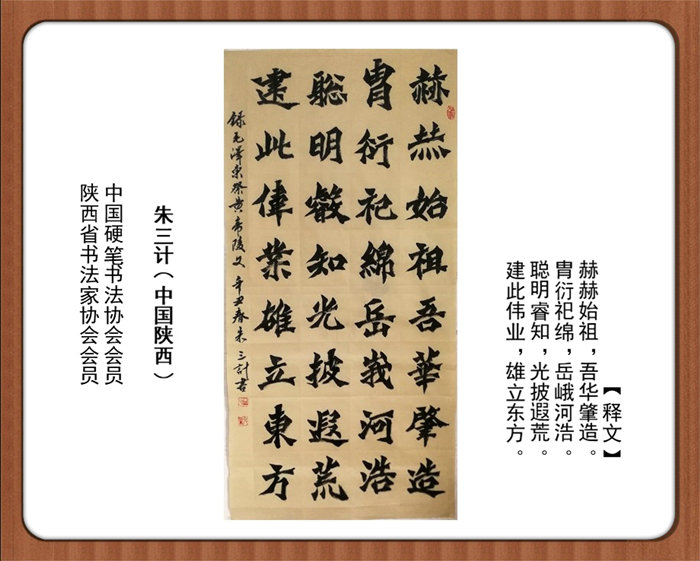 【释文】
赫赫始祖，吾华肇造。
胄衍祀绵，岳峨河浩。
聪明睿知，光披遐荒。
建此伟业，雄立东方。
赫赫始祖吾華肇造
胄衍祀綿岳峩河浩
聪明叡知光披遐荒
建此偉業雄立東方
録毛澤東祭黄帝陵文辛丑春朱三計書
朱三计（中国陕西）
中国硬笔书法协会会员
陕西省书法家协会会员